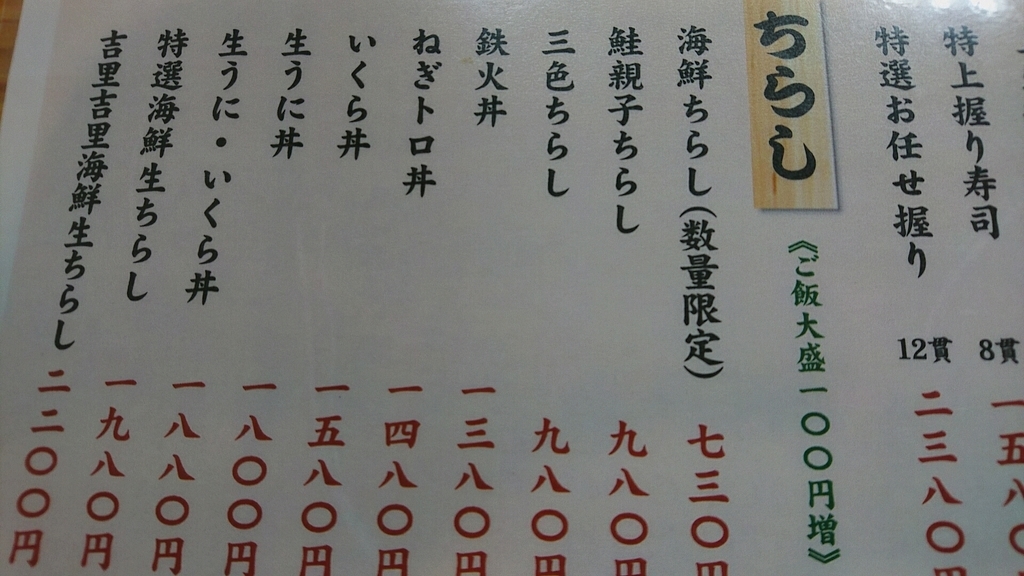 特上握り寿司 8貫 一五八
特選お任せ握り 12貫 二三八〇円
ちらし
《ご飯大盛一〇〇円増》
海鮮ちらし(数量限定) 七三〇円
鮭親子ちらし 九八〇円
三色ちらし 九八〇円
鉄火丼 一三八〇円
ねぎトロ丼 一四八〇円
いくら丼 一五八〇円
生うに丼 一八〇〇円
生うに・いくら丼 一八八〇円
特選海鮮生ちらし 一九八〇円
吉里吉里海鮮生ちらし 二二〇〇円